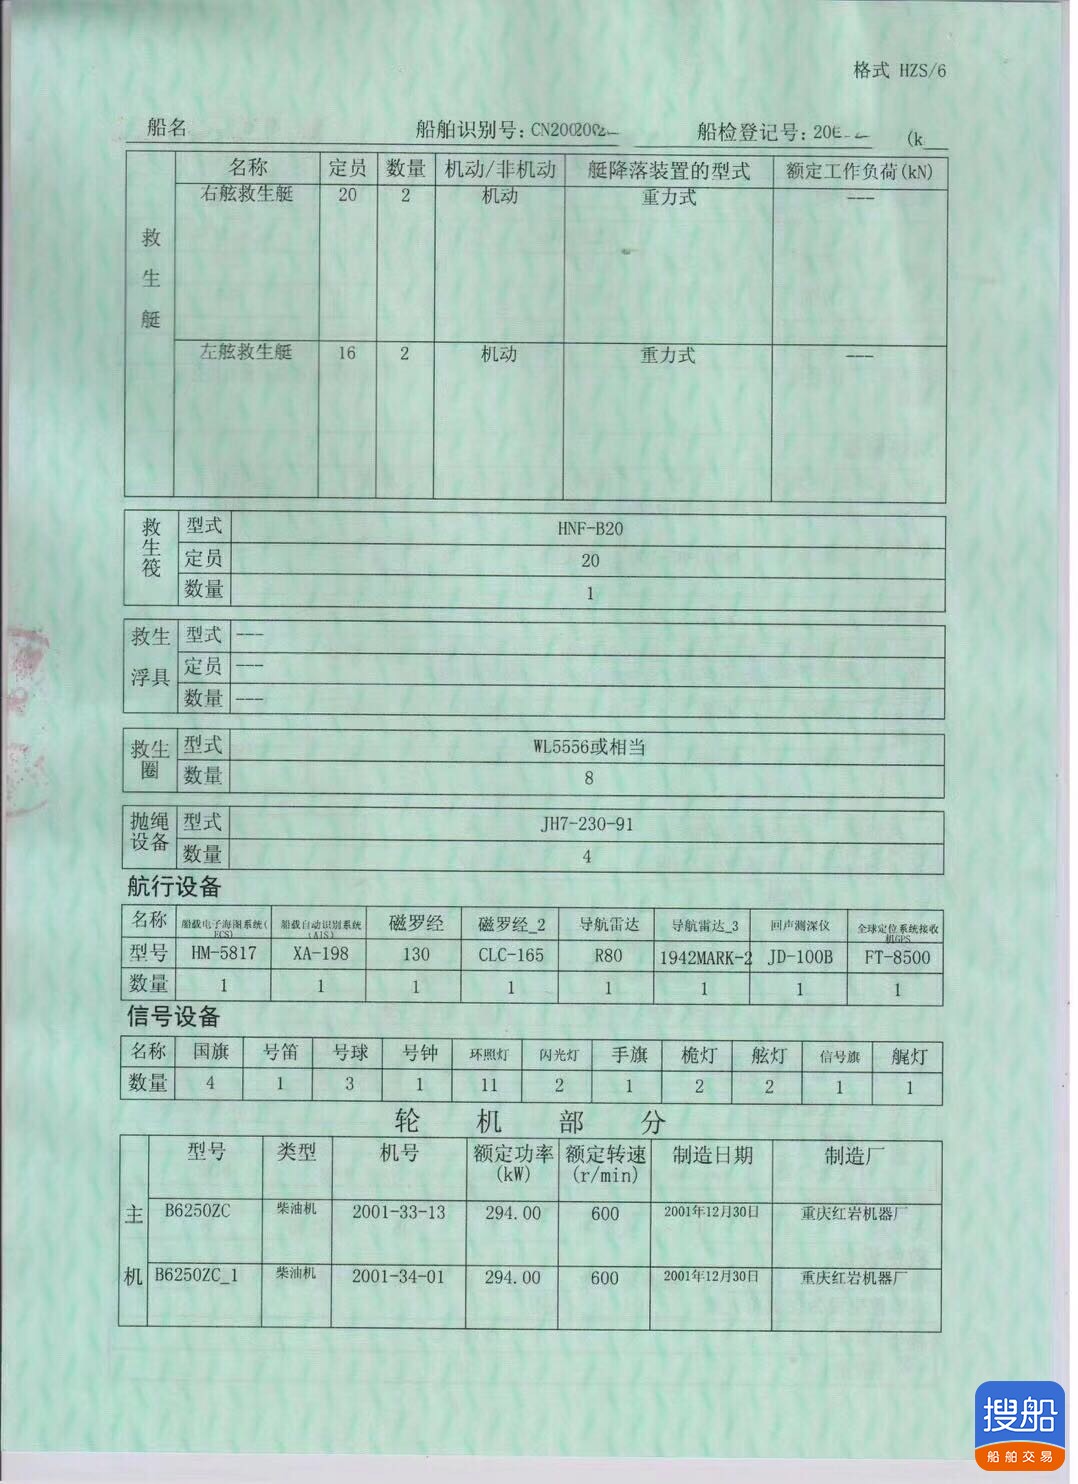 格式 HZS/6
船名 船舶识别号: CN200200 船检登记号: 20 (k
救生艇
名称 定员 数量 机动/非机动 艇降落装置的型式 额定工作负荷(kN)
右舷救生艇 20 2 机动 重力式 ---
左舷救生艇 16 2 机动 重力式 ---
救生筏
型式 HNF-B20
定员 20
数量 1
救生浮具
型式 ---
定员 ---
数量 ---
救生圈
型式 WL5556或相当
数量 8
抛绳设备
型式 JH7-230-91
数量 4
航行设备
名称 船载电子海图系统(ECS) 船载自动识别系统(AIS) 磁罗经 磁罗经_2 导航雷达 导航雷达_3 回声测深仪 全球定位系统接收机GPS
型号 HM-5817 XA-198 130 CLC-165 R80 1942MARK-2 JD-100B FT-8500
数量 1 1 1 1 1 1 1 1
信号设备
名称 国旗 号笛 号球 号钟 环照灯 闪光灯 手旗 桅灯 舷灯 信号旗 艉灯
数量 4 1 3 1 11 2 1 2 2 1 1
轮机部分
主机
型号 类型 机号 额定功率(kW) 额定转速(r/min) 制造日期 制造厂
B6250ZC 柴油机 2001-33-13 294.00 600 2001年12月30日 重庆红岩机器厂
B6250ZC_1 柴油机 2001-34-01 294.00 600 2001年12月30日 重庆红岩机器厂
搜船
船舶交易